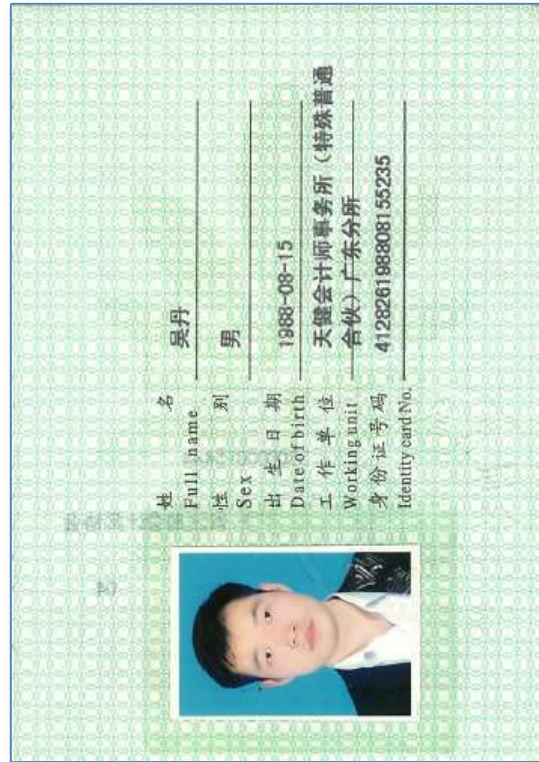 姓 名 吴丹
Full name
性 别 男
Sex
出 生 日 期 1988-08-15
Date of birth
工 作 单 位 天健会计师事务所（特殊普通
Working unit 合伙）广东分所
身 份 证 号 码 412826198808155235
Identity card No.